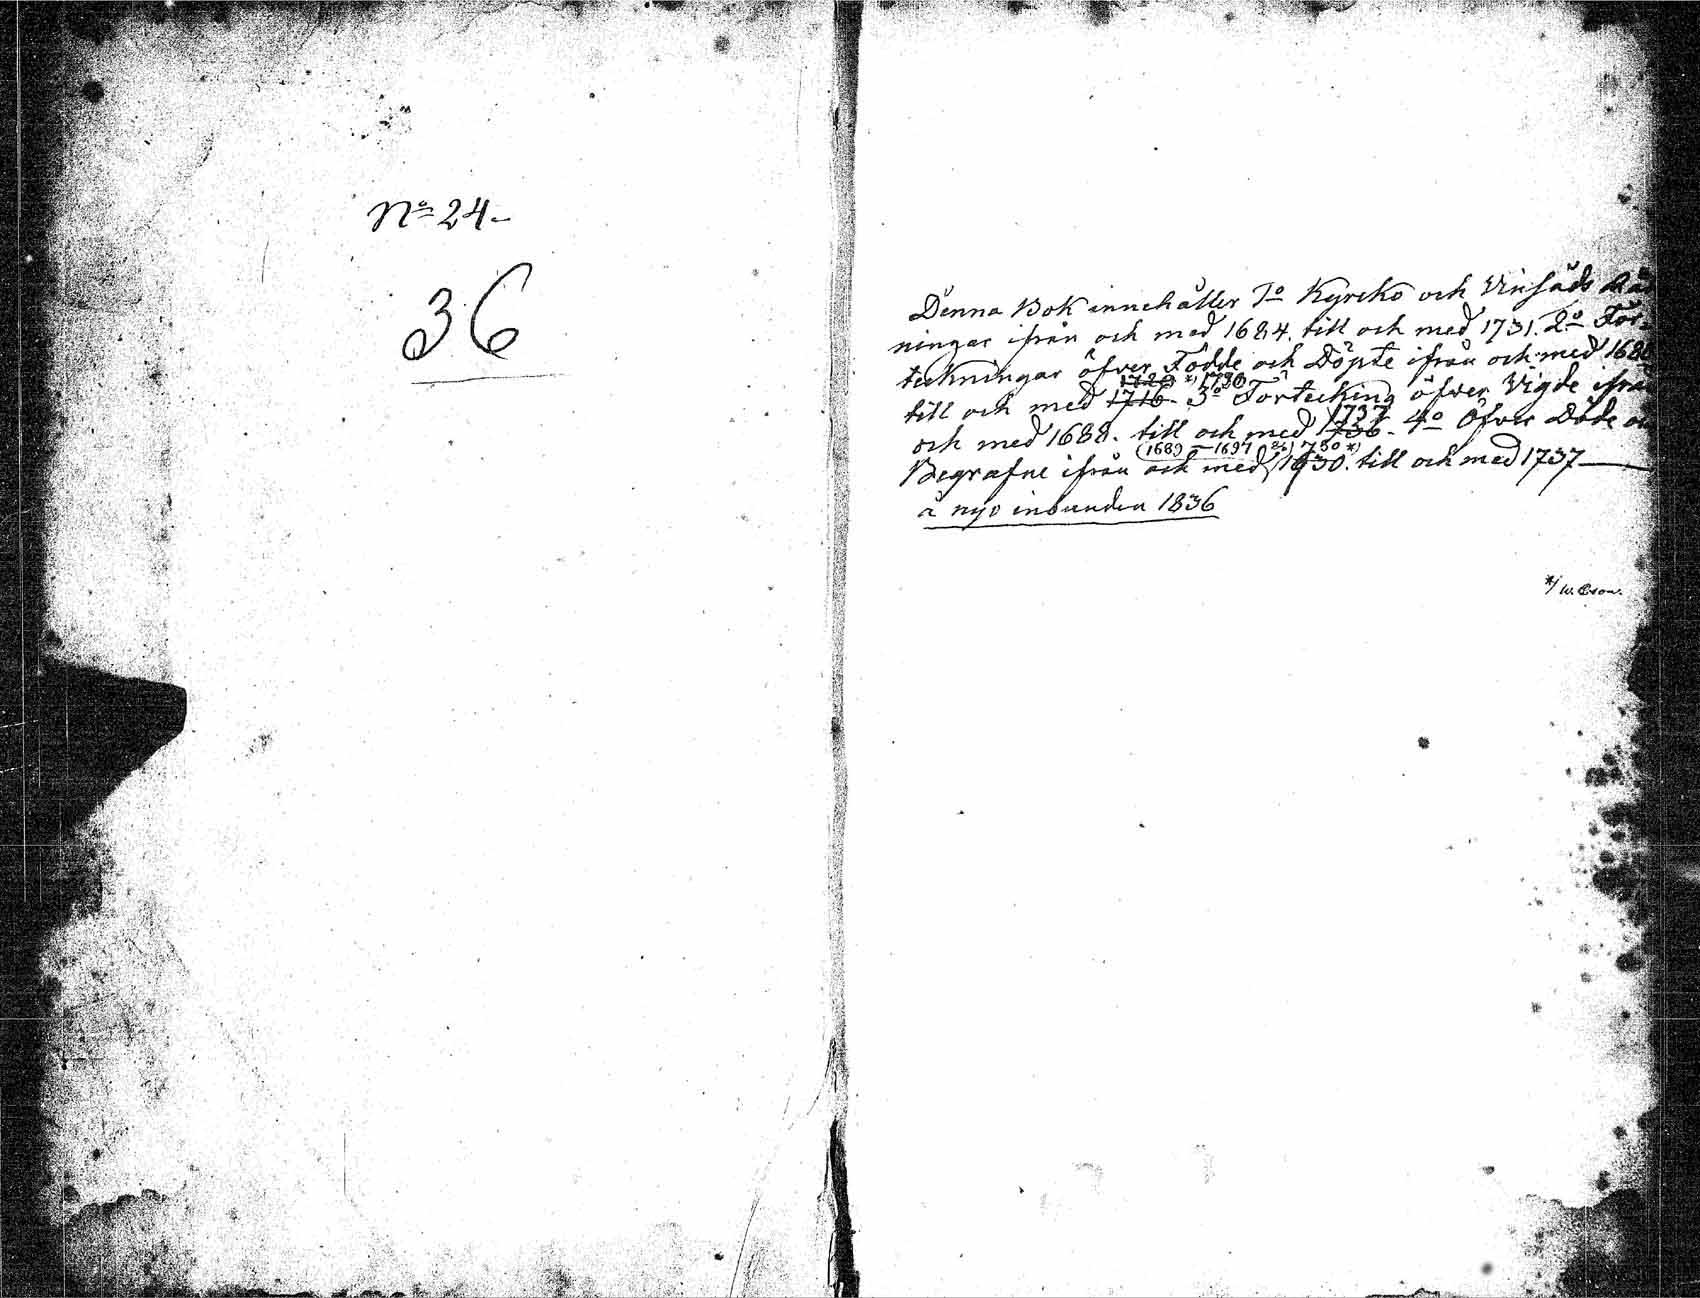 No 24.
36
Denna Bok innehåller 1o Kyrcko och Vinsäds Räk
ningar ifrån och med 1684. till och med 1731. 2o För-
teckningar öfver Födde och Döpte ifrån och med 168
1720 *) 1730
till och med 1716. 3o Förteckning öfver Vigde ifrån
1737
och med 1688. till och med 1736. 4o Öfver Döde
(1689 - 1697 *)
Begrafne ifrån och med till och med 1737
å nyo inbunden 1836
*)